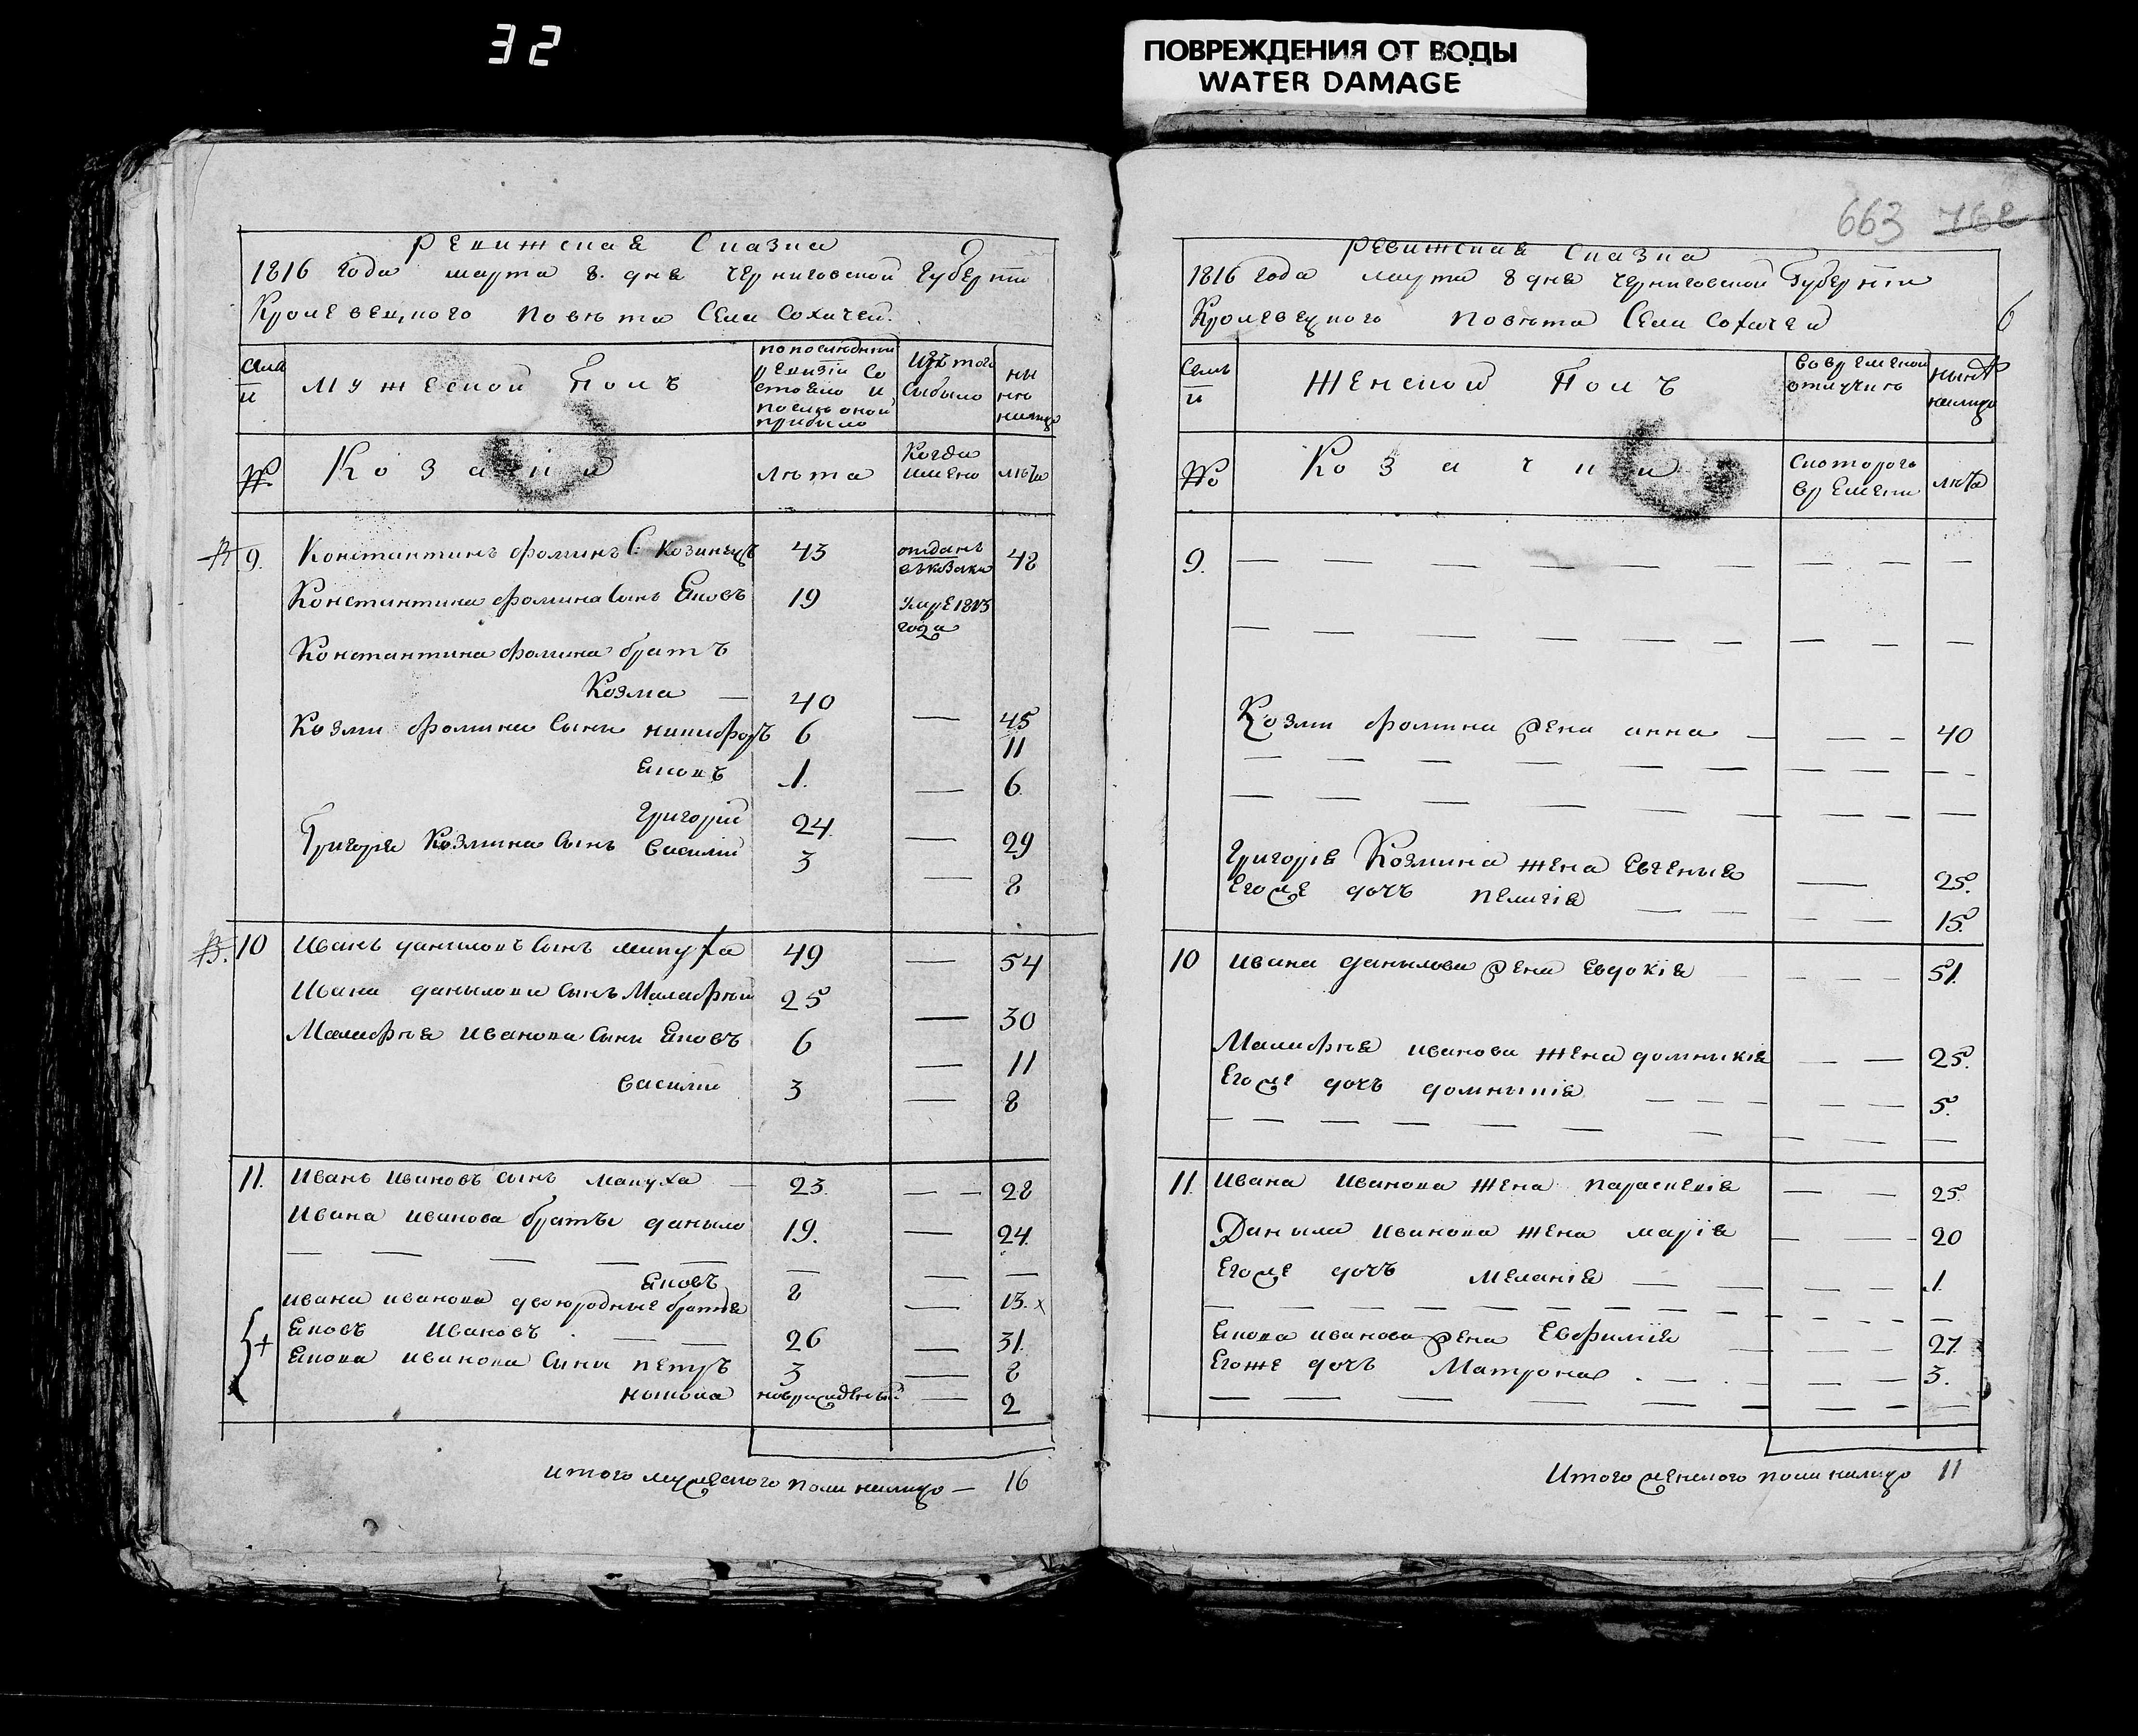 32
ПОВРЕЖДЕНИЯ ОТ ВОДЫ
WATER DAMAGE
Ревижская Сказка
1816 года марта 8. дня Черниговской губернїи
Кролевецкого повѣта Села Сохачей.
Семьи
Мужеской Полъ
по последней ревизїи состояло и после оной прибыло
Изъ того выбыло
ныне налицо
№
Козаки
лѣта
Когда имено
лѣта
9. Константинъ фоминъ С: Козинецъ 43 отданъ въ козаки 48
Константина фомина сынъ Яковъ 19 умре 1813 года
Константина фомина братъ
Козма — 40 — 45
Козми фомина сыни никифоръ 6 11
Яковъ 1. — 6.
Григорїй 24. — 29
Григорїя Козмина сынъ василїй 3 — 8
10 Иванъ даниловъ сынъ мапуха 49 — 54
Ивана данилова сынъ Малафѣй 25 — 30
Малафѣя иванова сыни Яковъ 6 — 11
василїй 3 — 8
11. Иванъ ивановъ сынъ мапуха — 23. — — 28
Ивана иванова братъи данило 19. — 24.
— — — — — — —
Яковъ 8 — 13. х
ивана иванова двоюродные братья
Яковъ Ивановъ — — 26 — 31.
Якова иванова сыни петръ 3 — 8
новорожденный — 2
итого мужеского пола налицо — 16
663 762
Ревижская Сказка
1816 года марта 8 дня Черниговской Губернїи
Кролевецкого повѣта Села Сохачей
6
Семьи
Женской Полъ
во временной отлучкѣ
нынѣ налицо
№
Козачки
С которого времени
лѣта
9. — — — — — — — — —
— — — — — — — — —
Козми фомина жена анна — — — 40
— — — — — — — — — —
— — — — — — — — — —
Григорїя Козмина жена Евгения — 25.
Егоже дочь пелагїя — — — — 15.
10 Ивана данилова жена евдокїя — — — 51.
Малафѣя иванова жена домникїя — — 25.
Егоже дочь домникїя — — — — — 5.
— — — — — — — — — —
11. Ивана Иванова жена параскевїя — — 25.
Данила Иванова жена марїя — — 20
Егоже дочь Меланїя — — — — 1.
— — — — — — — — — —
Якова иванова жена Евфимїя — — — 27.
Егоже дочь Матрона — — — — 3.
— — — — — — — — —
Итого женского пола налицо 11